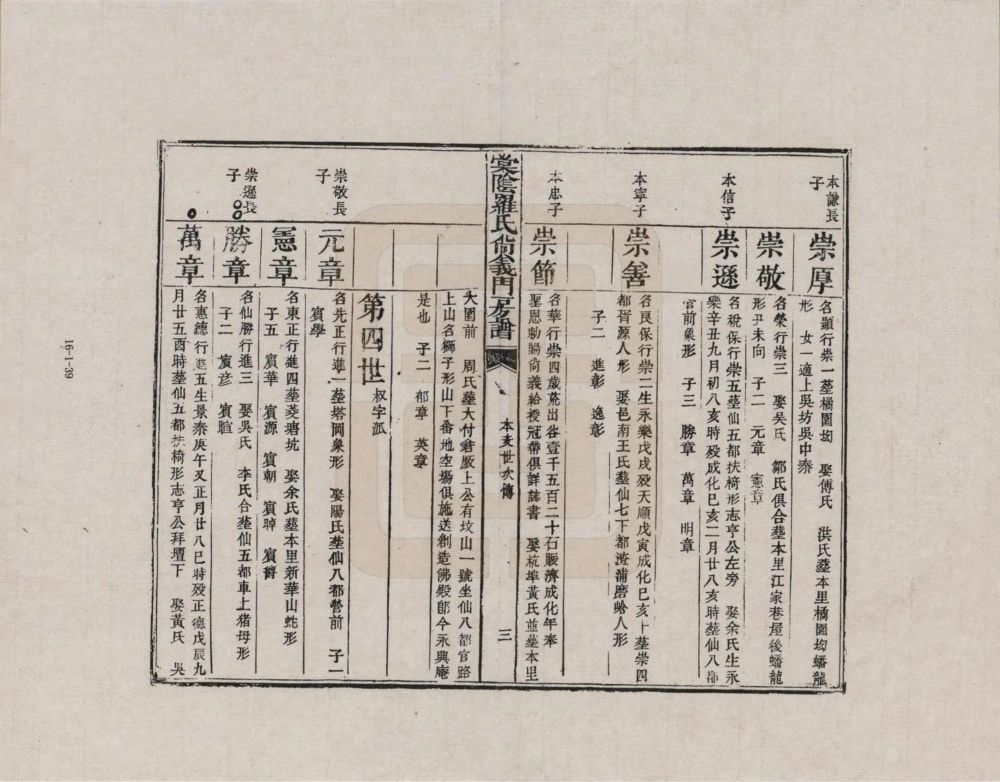 本謙長
子
崇厚
名顯行崇一塟橘園坳 娶傅氏 洪氏塟本里橘園坳蟠龍
形 女一適上吳坊吳中泰
崇敬
名榮行崇三 娶吴氏 鄒氏俱合塟本里江家巷屋後蟠龍
形丑未向 子二 元章 憲章
本信子
崇遜
名稅保行崇五塟仙五都扶椅形志亨公左旁 娶余氏生永
樂辛丑九月初八亥時殁成化己亥二月廿八亥時塟仙八都
官前象形 子三 勝章 萬章 明章
本寧子
崇善
名艮保行崇二生永樂戊戌殁天順戊寅成化己亥十塟崇四
都胥源人形 娶邑南王氏塟仙七下都澄浦磨蛤人形
子二 進彰 逸彰
本忠子
崇節
名華行崇四歲荒出谷壹千五百二十石賑濟成化年奉
聖恩勅賜尚義給授冠帶俱詳誌書 娶杭埠黃氏並塟本里
棠陰羅氏尚義門房譜
本支世次傳
三
大園前 周氏塟大付倉殿上公有坟山一號坐仙八都官路
上山名獅子形山下番地空塲俱施送創造佛殿卽今永興庵
是也 子二 郁章 英章
第四世
叔字派
崇敬長
子
元章
名先正行進一塟塔岡象形 娶陽氏塟仙八都營前 子一
賔學
憲章
名東正行進四塟菱塘坑 娶余氏塟本里新華山蛇形
子五 賔華 賔源 賔朝 賔聘 賔爵
崇遜長
子
勝章
名仙勝行進三 娶吳氏 李氏合塟仙五都車上猪母形
子二 賔彦 賔暄
萬章
名惠德行進五生景泰庚午又正月廿八巳時殁正德戊辰九
月廿五酉時塟仙五都扶椅形志亨公拜壇下 娶黃氏 吳
16-1-39